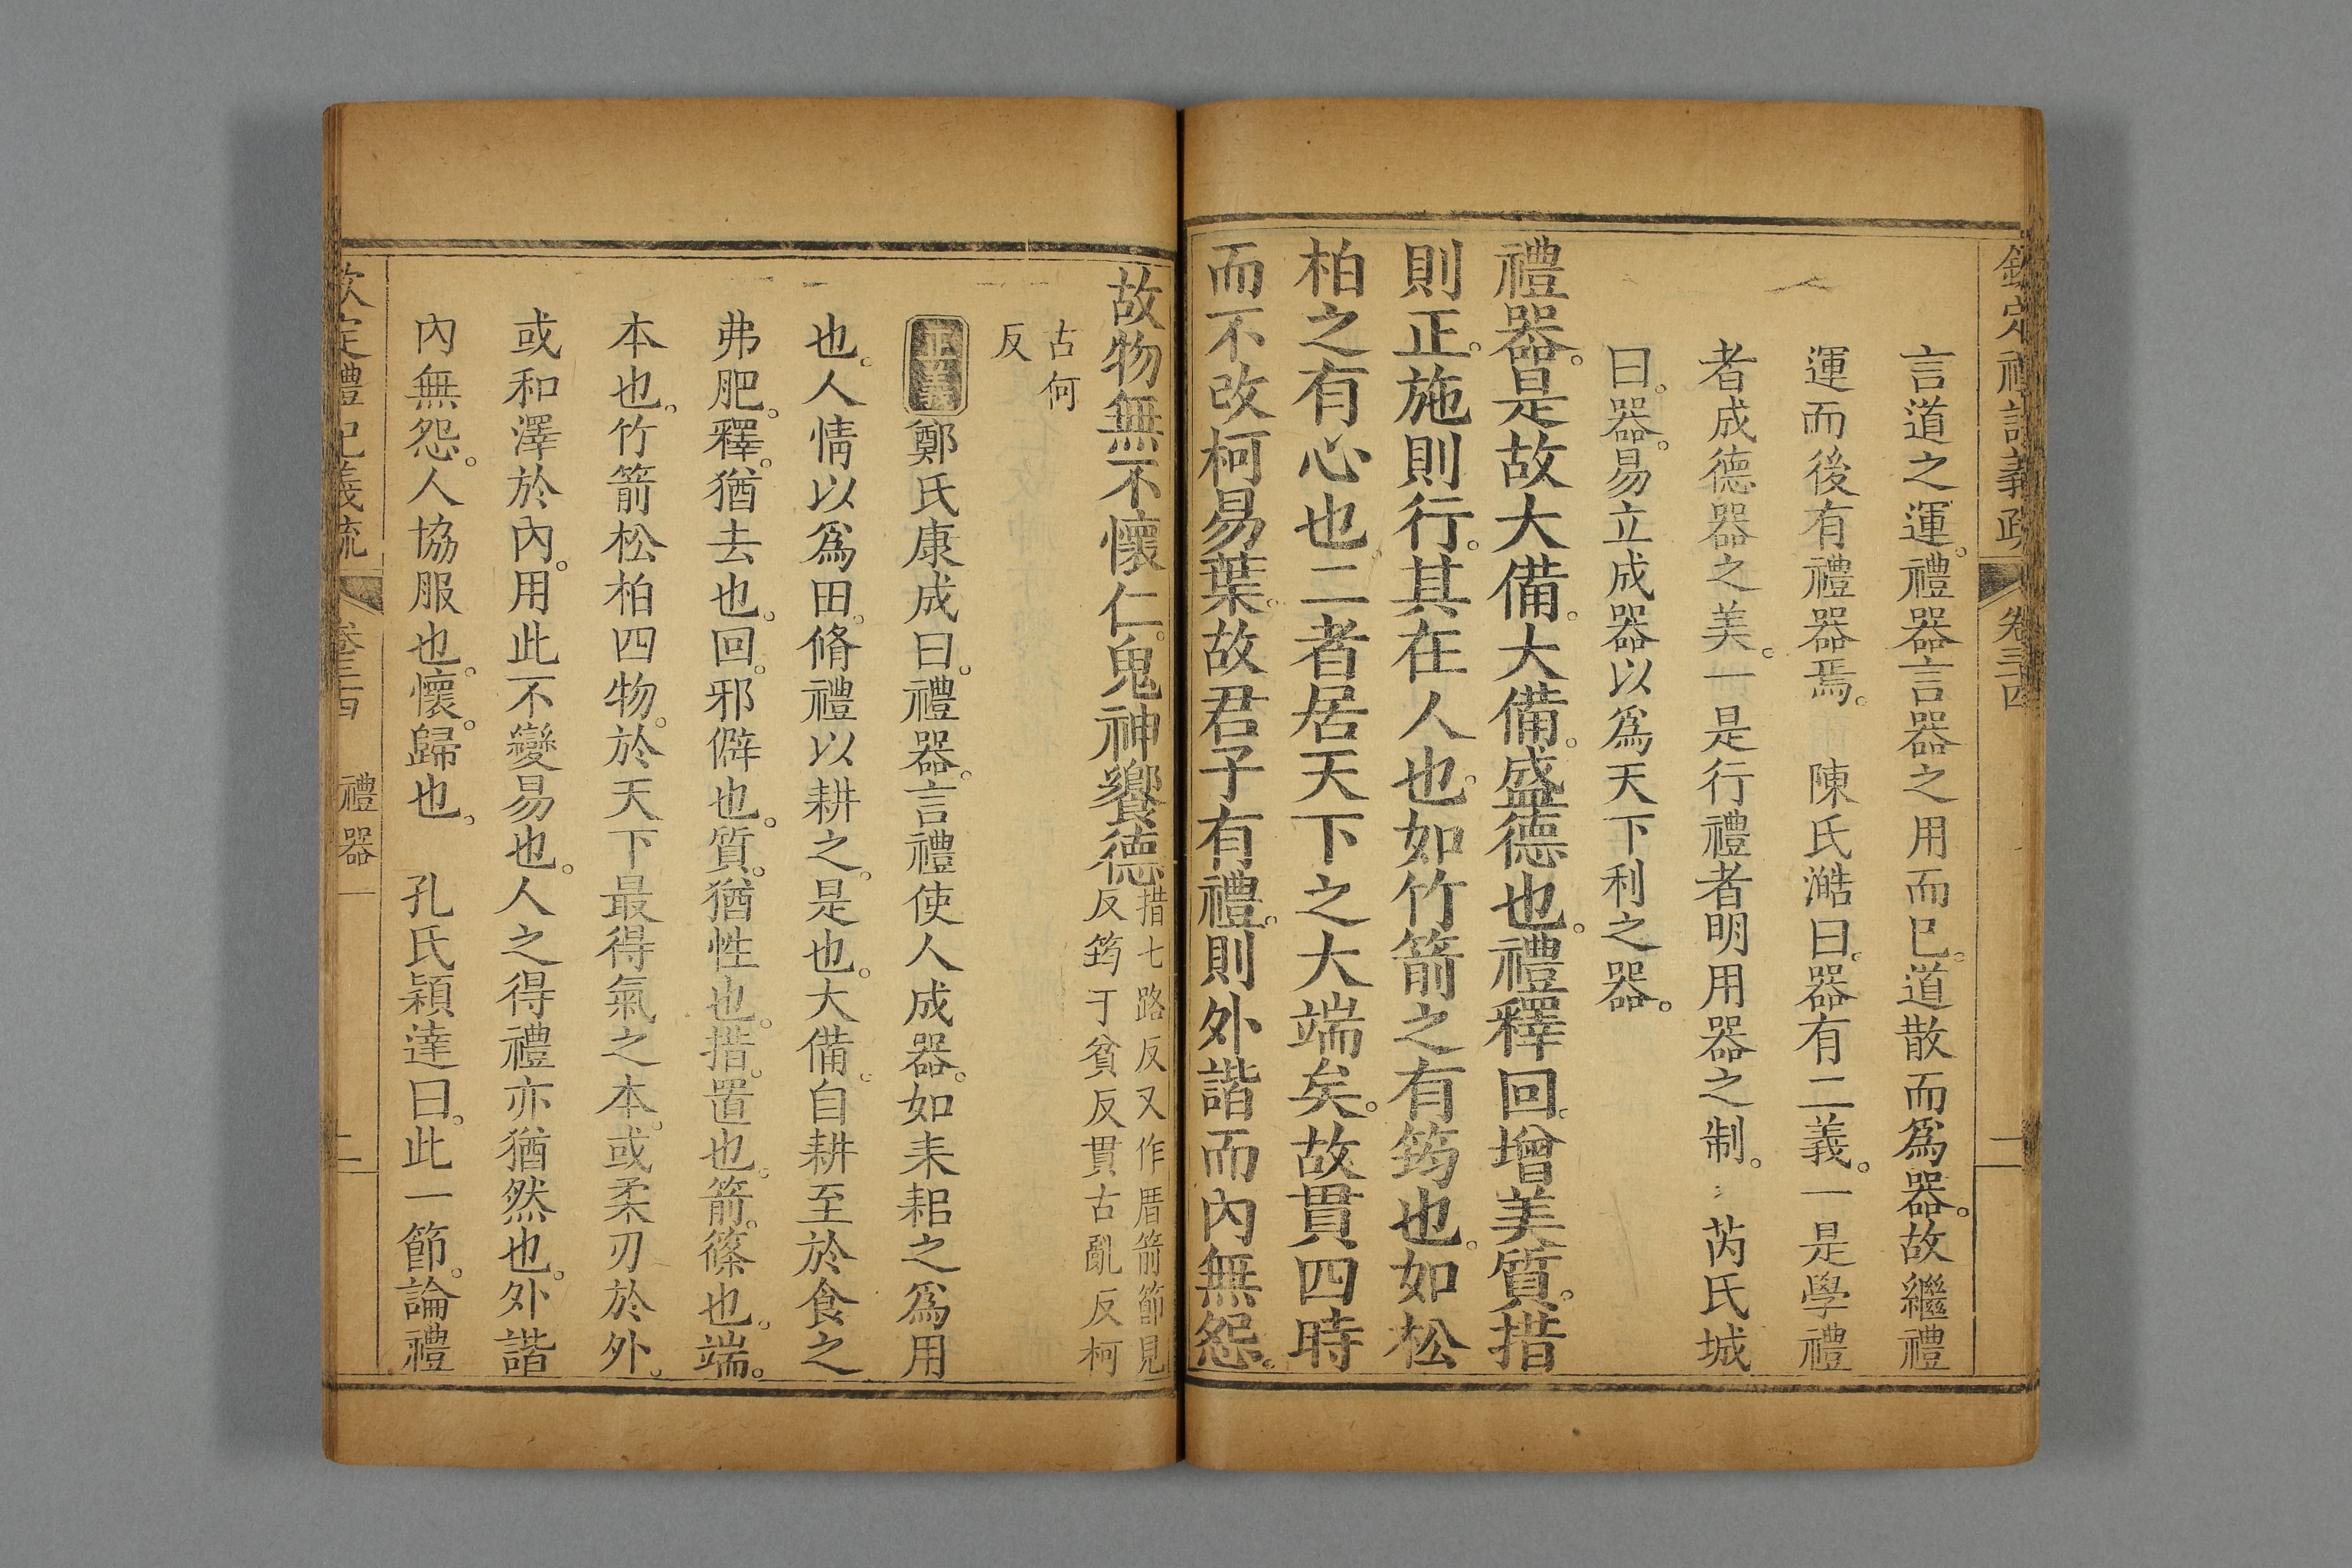 欽定禮記義疏 卷三十四 一
言道之運。禮器言器之用而已。道散而爲器。故繼禮
運而後有禮器焉。 陳氏澔曰。器有二義。一是學禮
者成德器之美。一是行禮者明用器之制。 芮氏城
曰。器。易立成器以爲天下利之器。
禮器。是故大備。大備。盛德也。禮釋回。增美質。措
則正。施則行。其在人也。如竹箭之有筠也。如松
柏之有心也。二者居天下之大端矣。故貫四時
而不改柯易葉。故君子有禮。則外諧而內無怨。
故物無不懷仁。鬼神饗德。
措七路反又作厝箭節見
反筠于貧反貫古亂反柯
古何
反
正義鄭氏康成曰。禮器。言禮使人成器。如耒耜之爲用
也。人情以爲田。脩禮以耕之。是也。大備。自耕至於食之
弗肥。釋。猶去也。回。邪僻也。質。猶性也。措。置也。箭。篠也。端。
本也。竹箭松柏四物。於天下最得氣之本。或柔刃於外。
或和澤於內。用此不變易也。人之得禮亦猶然也。外諧
內無怨。人協服也。懷。歸也。 孔氏穎達曰。此一節。論禮
欽定禮記義疏 卷三十四 禮器一 二